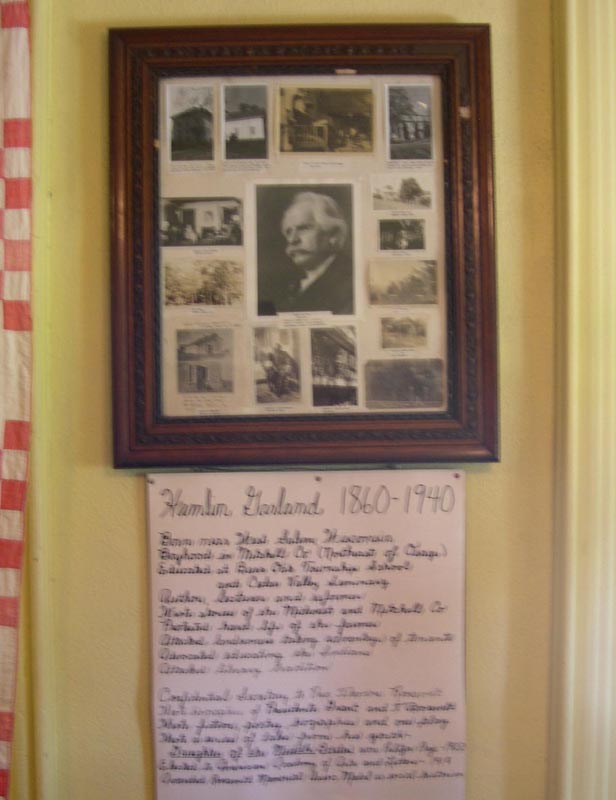 Hamlin Garland 1860-1940
Born near West Salem, Wisconsin
Boyhood in Mitchell Co (Northeast of Osage)
Educated at Burr Oak Township School
and Cedar Valley Seminary
Author, lecturer and reformer
Wrote stories of the Midwest and Mitchell Co
Protested hard life of the farmer
Attacked landowners taking advantage of tenants
Advocated educating the Indians
Attacked literary tradition
Confidential Secretary to Pres. Theodore Roosevelt
Wrote biographies of Presidents Grant and T Roosevelt
Wrote fiction, poetry, biographies and one play
Wrote a series of tales from his youth-
Daughter of the Middle Border won Pulitzer Prize - 1922
Elected to American Academy of Arts and Letters - 1919
Roosevelt Memorial Assn. Medal as social historian